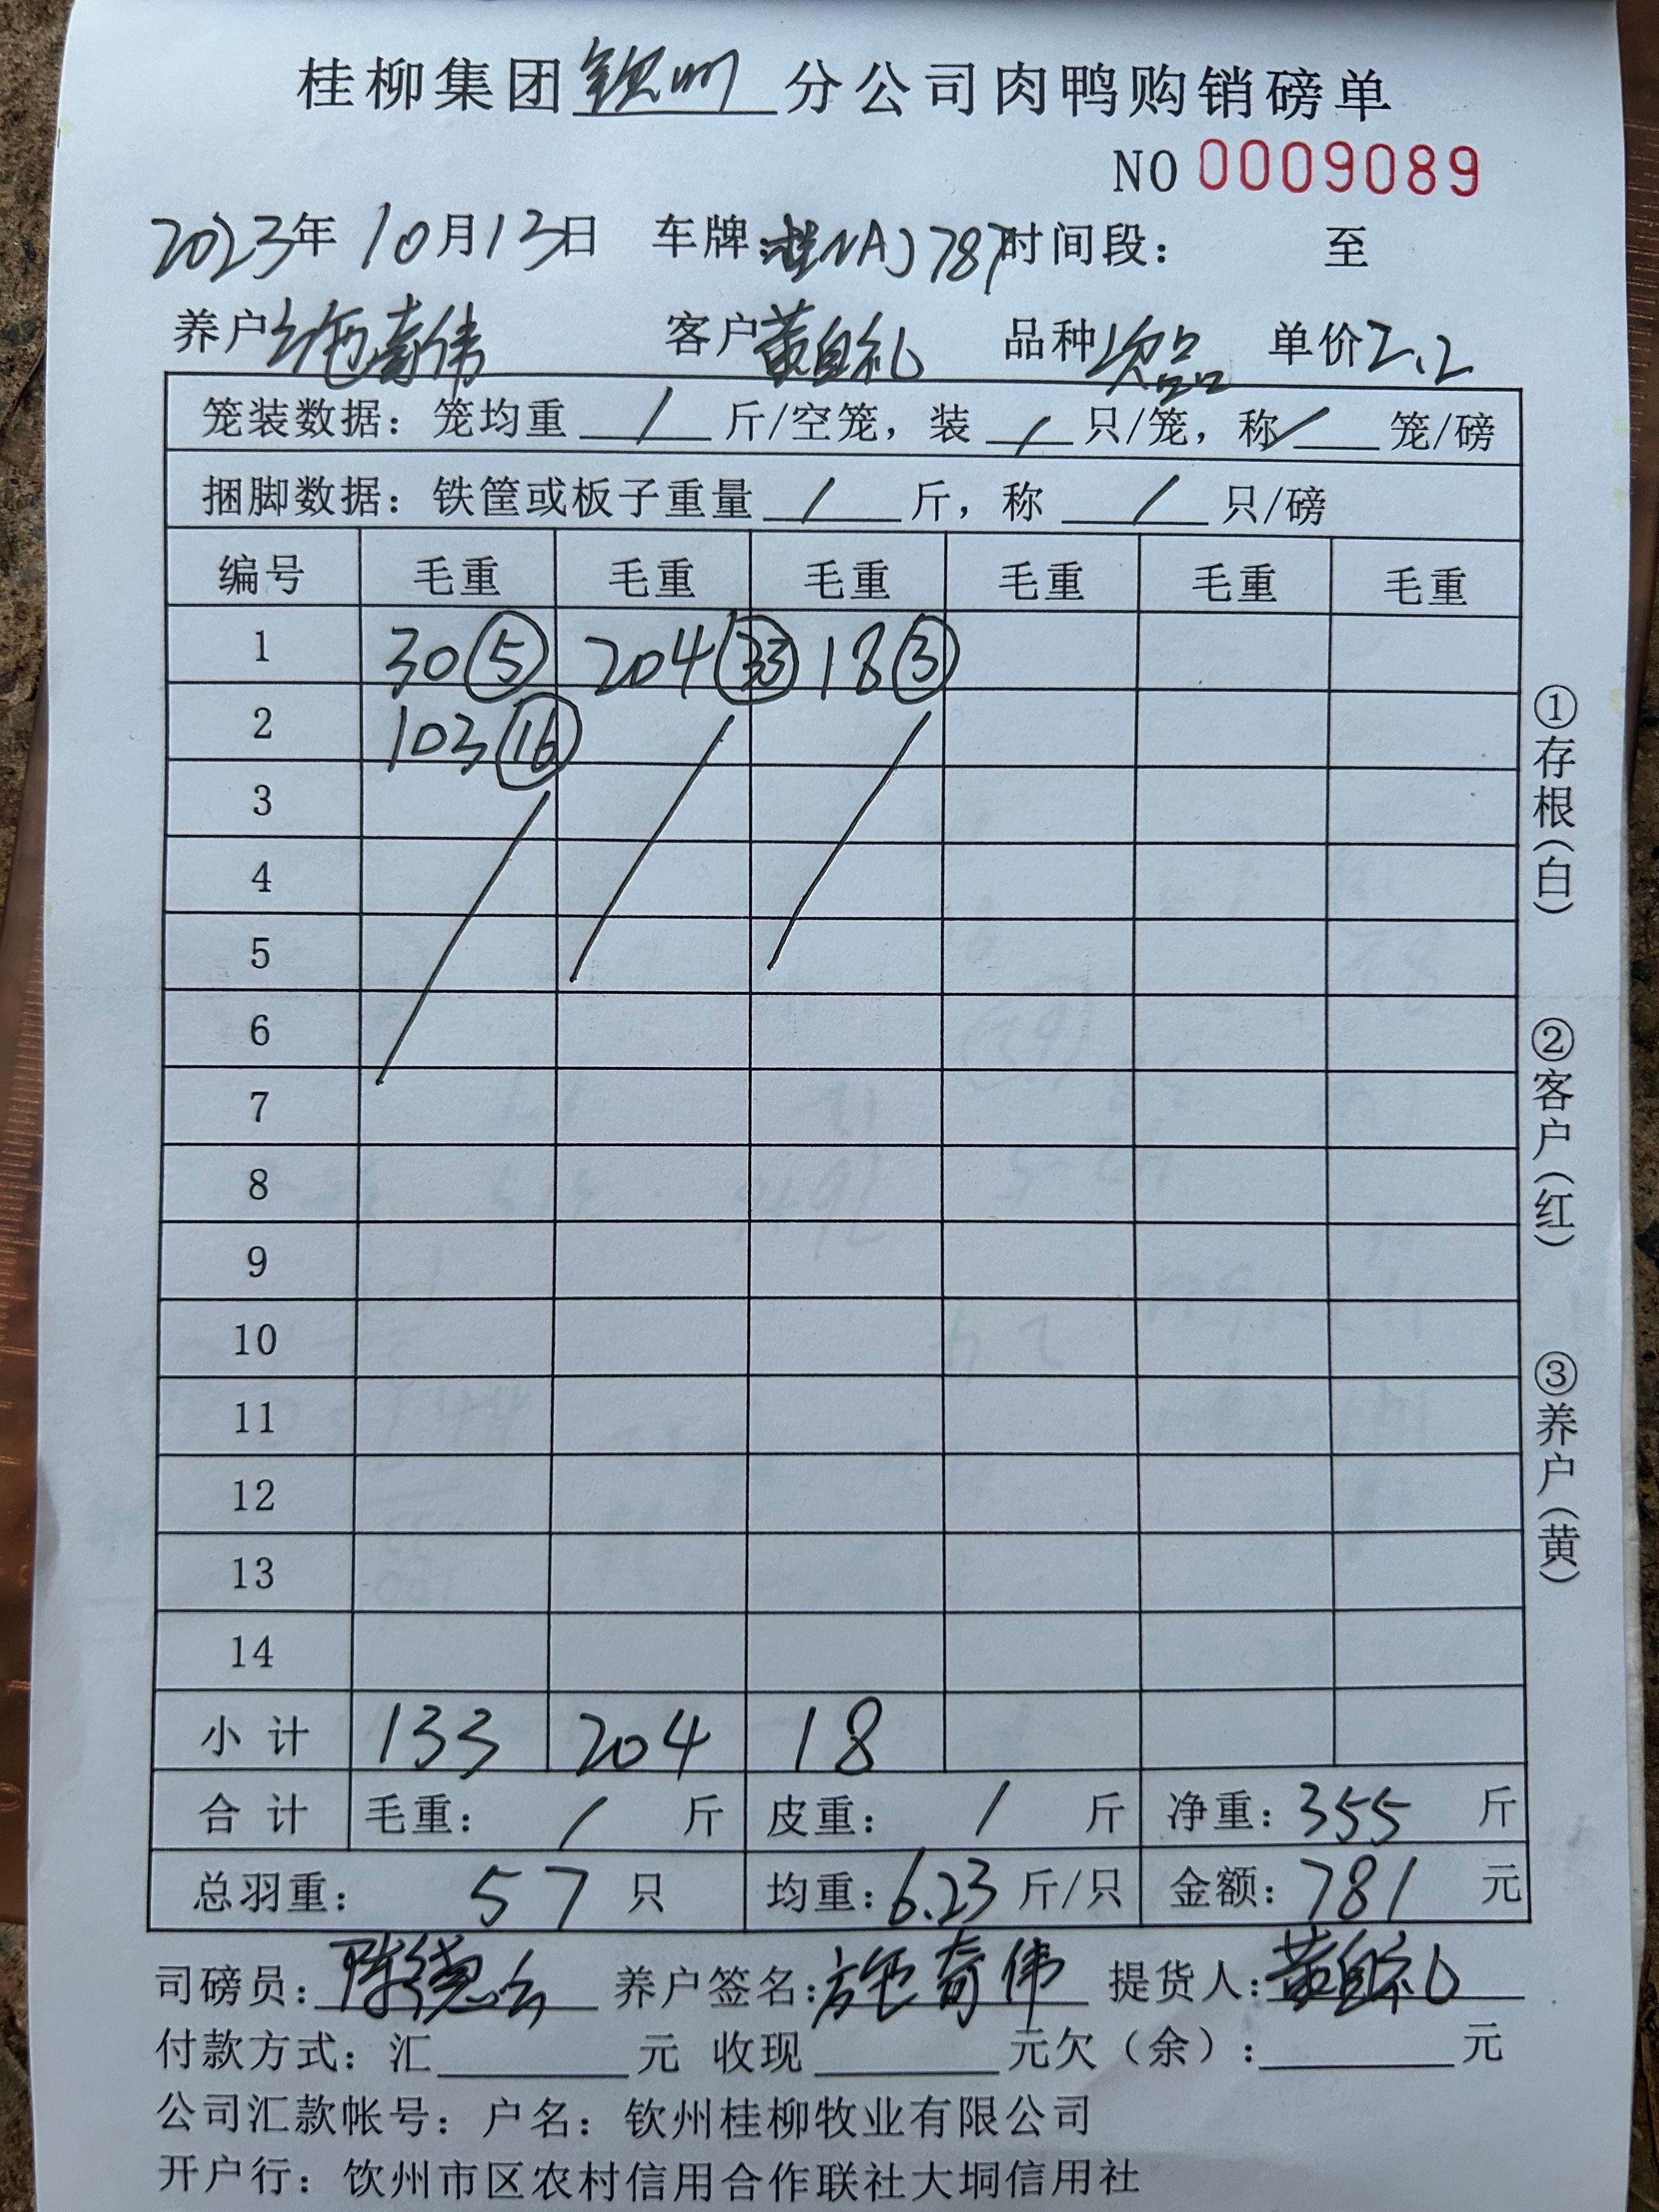 桂柳集团钦州分公司肉鸭购销磅单
NO 0009089
2023年10月13日 车牌:桂NAJ787时间段： 至
养户施奇伟 客户黄自礼 品种次品 单价2.2
笼装数据：笼均重 / 斤/空笼，装 / 只/笼，称 / 笼/磅
捆脚数据：铁筐或板子重量 / 斤，称 / 只/磅
编号 毛重 毛重 毛重 毛重 毛重 毛重
1 30 ⑤ 204 ㉝ 18 ③
2 103 ⑯
3
4
5
6
7
8
9
10
11
12
13
14
小计 133 204 18
合计 毛重： / 斤 皮重： / 斤 净重：355 斤
总羽重： 57 只 均重：6.23斤/只 金额：781 元
司磅员：陈德 养户签名：施奇伟 提货人：黄自礼
付款方式：汇 元 收现 元欠（余）： 元
公司汇款帐号：户名：钦州桂柳牧业有限公司
开户行：饮州市区农村信用合作联社大垌信用社
①存根（白）
②客户（红）
③养户（黄）